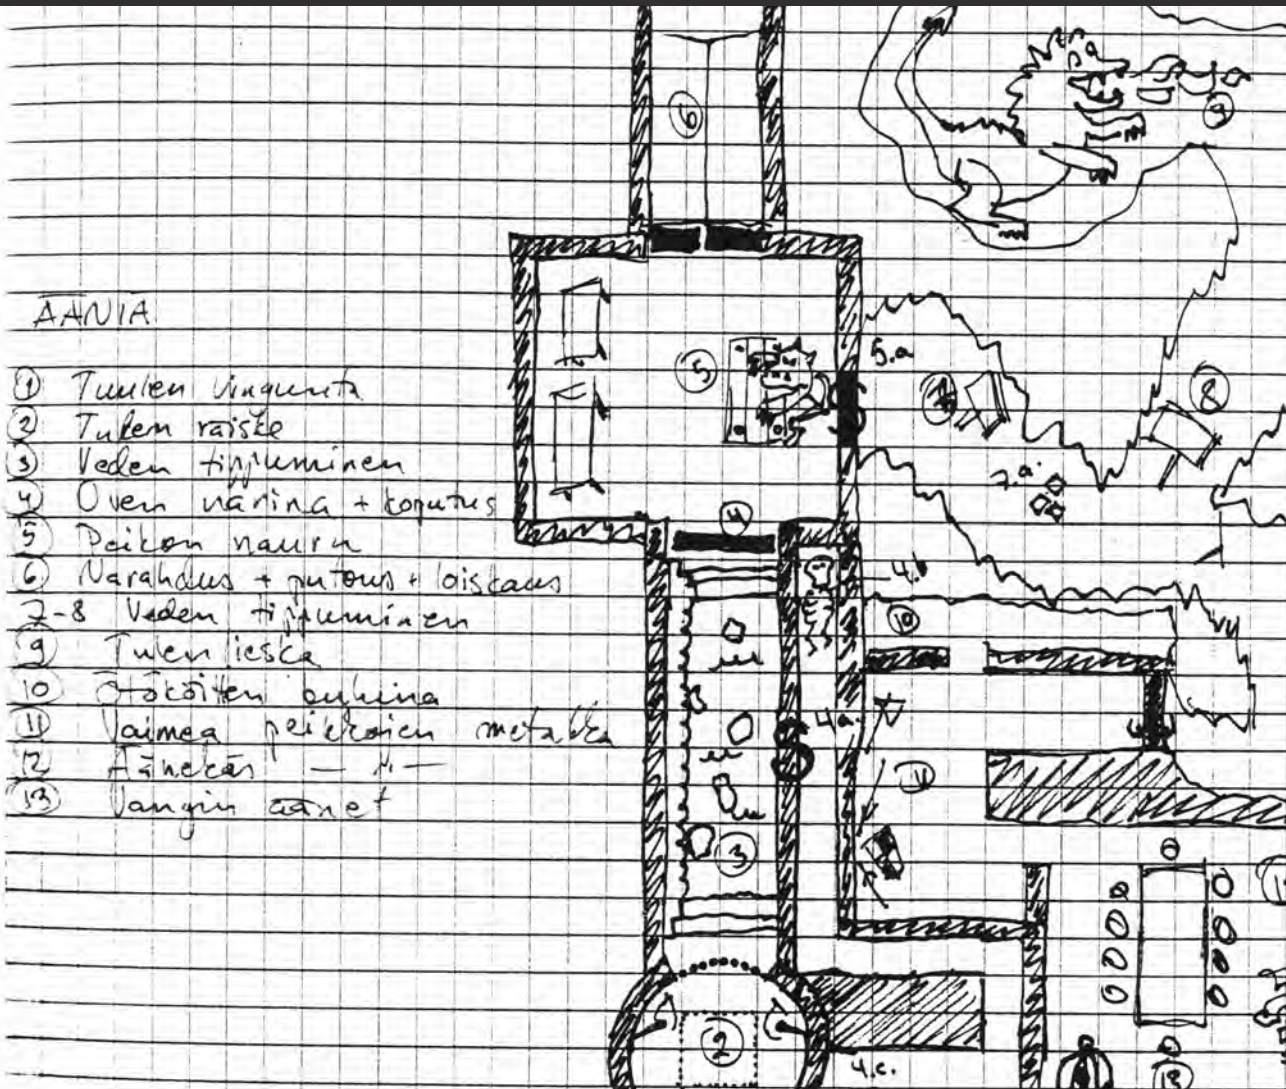 ÄÄNIÄ
① Tuulen vingunta
② Tulen raiske
③ Veden tippuminen
④ Oven narina + koputus
⑤ Peikon nauru
⑥ Narahdus + putous + loiskaus
7-8 Veden tippuminen
⑨ Tulen
⑩ Ötököitten
⑪ Vaimea peikkojen metakka
⑫ Äänekäs — 〃 —
⑬ Vangin äänet
⑥
⑨
⑤
5.a
⑧
7.a
④
4.b
⑩
4a.
11
③
②
4.c.
12